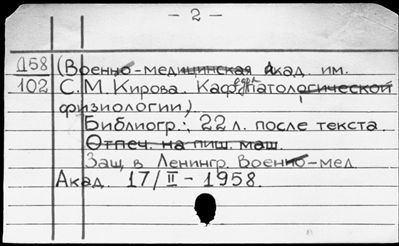 - 2 -
Д58 (Военно-медицинская Акад. им.
102 С.М. Кирова. Каф. патологической
физиологии)
Библиогр.: 22 л. после текста.
Отпеч. на пиш. маш.
Защ. в Ленингр. Военно-мед.
Акад. 17/II - 1958.